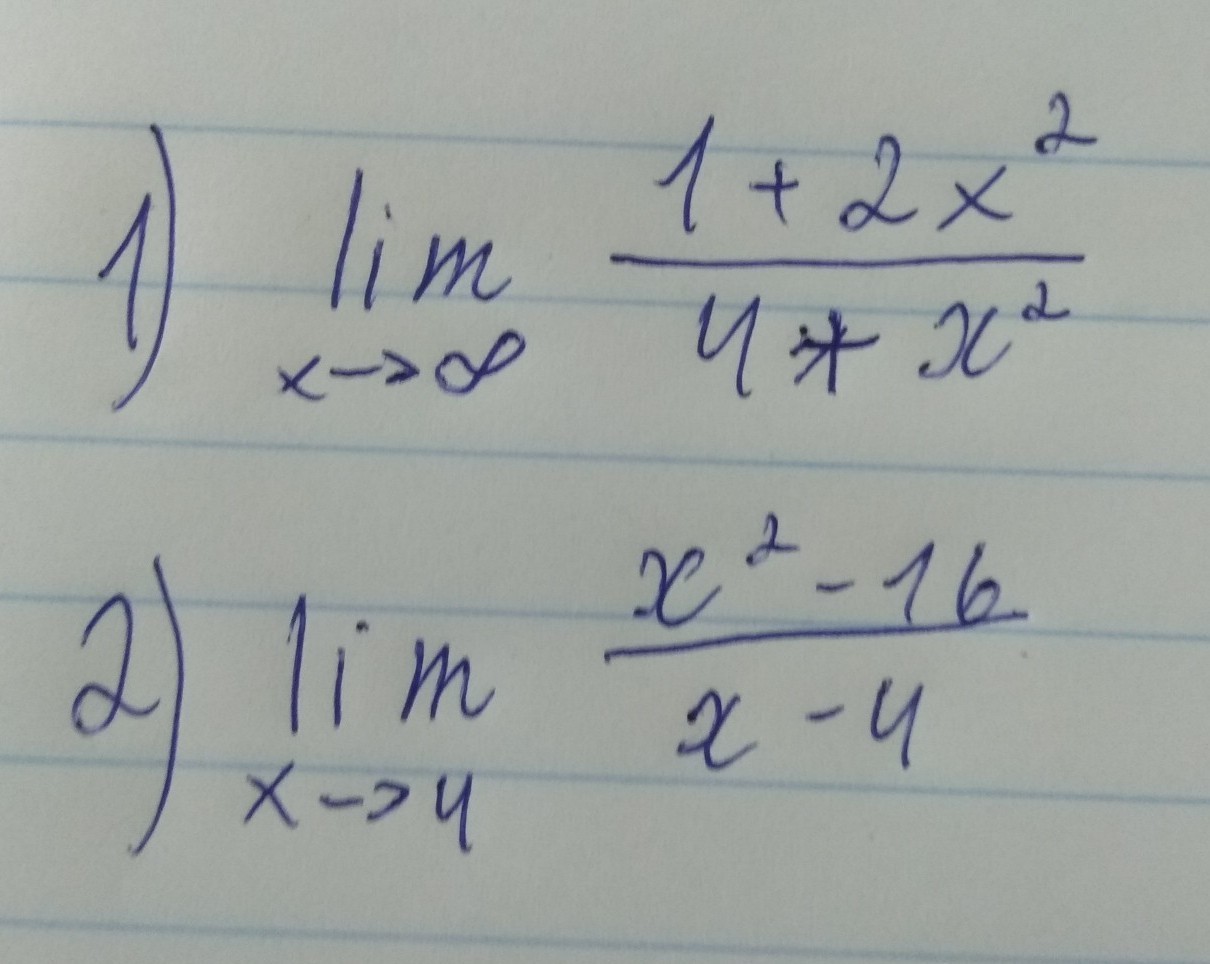 1) lim x→∞ (1 + 2x²)/(4 * x²)
2) lim x→4 (x² - 16)/(x - 4)